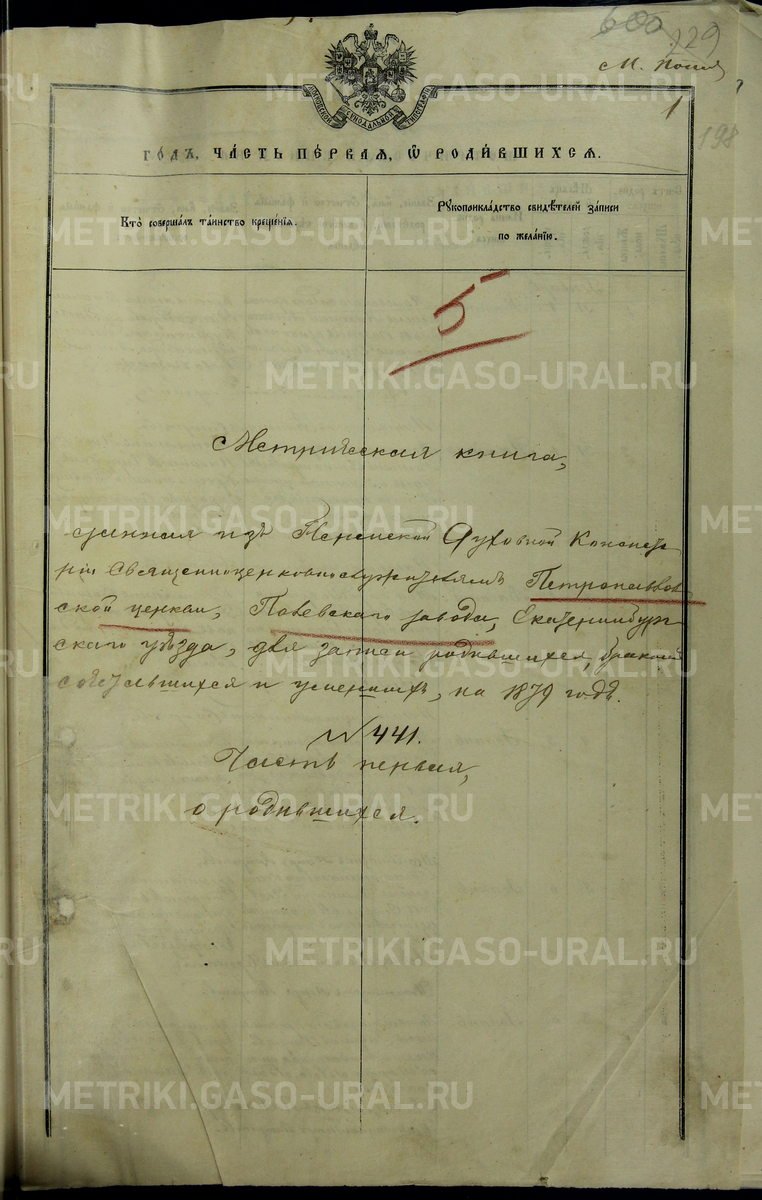 600
229
М.
1
198
МОСКОВСКОЙ СУНОДАЛЬНОЙ ТИПОГРАФІИ
ГО́ДЪ, ЧА́СТЬ ПЕ́РВАЯ, Ѡ РОДИ́ВШИХСЯ.
Кто̀ совершалъ та́инство креще́нїѧ.
Рꙋкоприкла́дство свидѣ́телей за́писи
по жела́нїю.
5
Метрическая книга,
данная изъ Пермской Духовной Консисто-
ріи Священноцерковнослужителямъ Петропавлов
ской церкви, Полевскаго завода, Екатеринбург
скаго уѣзда, для записи родившихся, бракомъ
сочетавшихся и умершихъ, на 1879 годъ.
№ 441.
Часть первая,
о родившихся.
METRIKI.GASO-URAL.RU